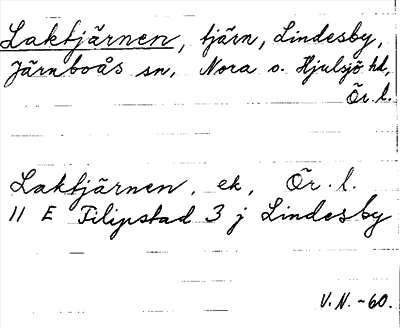 Laktjärnen, tjärn, Lindesby,
Järnboås sn, Nora o. Hjulsjö hd,
Ör. l.
Laktjärnen, ek, Ör. l.
11 E Filipstad 3 j Lindesby
V. N. -60.